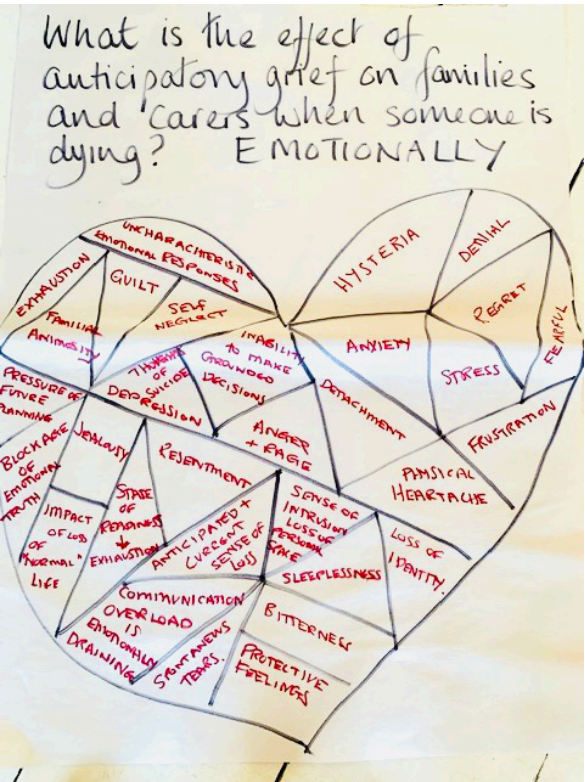 What is the effect of
anticipatory grief on families
and carers when someone is
dying? EMOTIONALLY
UNCHARACHTERISTIC
EMOTIONAL RESPONSES
EXHAUSTION
GUILT
FAMILIAL
ANIMOSITY
SELF
NEGLECT
HYSTERIA
DENIAL
REGRET
FEARFUL
ANXIETY
STRESS
INABILITY
TO MAKE
GROUNDED
DECISIONS
THOUGHTS
OF
SUICIDE
DEPRESSION
DETACHMENT
FRUSTRATION
PRESSURE OF
FUTURE
PLANNING
BLOCKAGE
OF
EMOTIONAL
TRUTH
JEALOUSY
RESENTMENT
ANGER
+ RAGE
PHYSICAL
HEARTACHE
IMPACT
OF LOSS
OF
"NORMAL"
LIFE
STATE
OF
READINESS
EXHAUSTION
ANTICIPATED +
CURRENT
SENSE OF
LOSS
SENSE OF
INTRUSION
LOSS OF
PERSONAL
SPACE
LOSS OF
IDENTITY.
SLEEPLESSNESS
COMMUNICATION
OVERLOAD
IS
EMOTIONALLY
DRAINING
SPONTANEWS
TEARS.
BITTERNESS
PROTECTIVE
FEELINGS